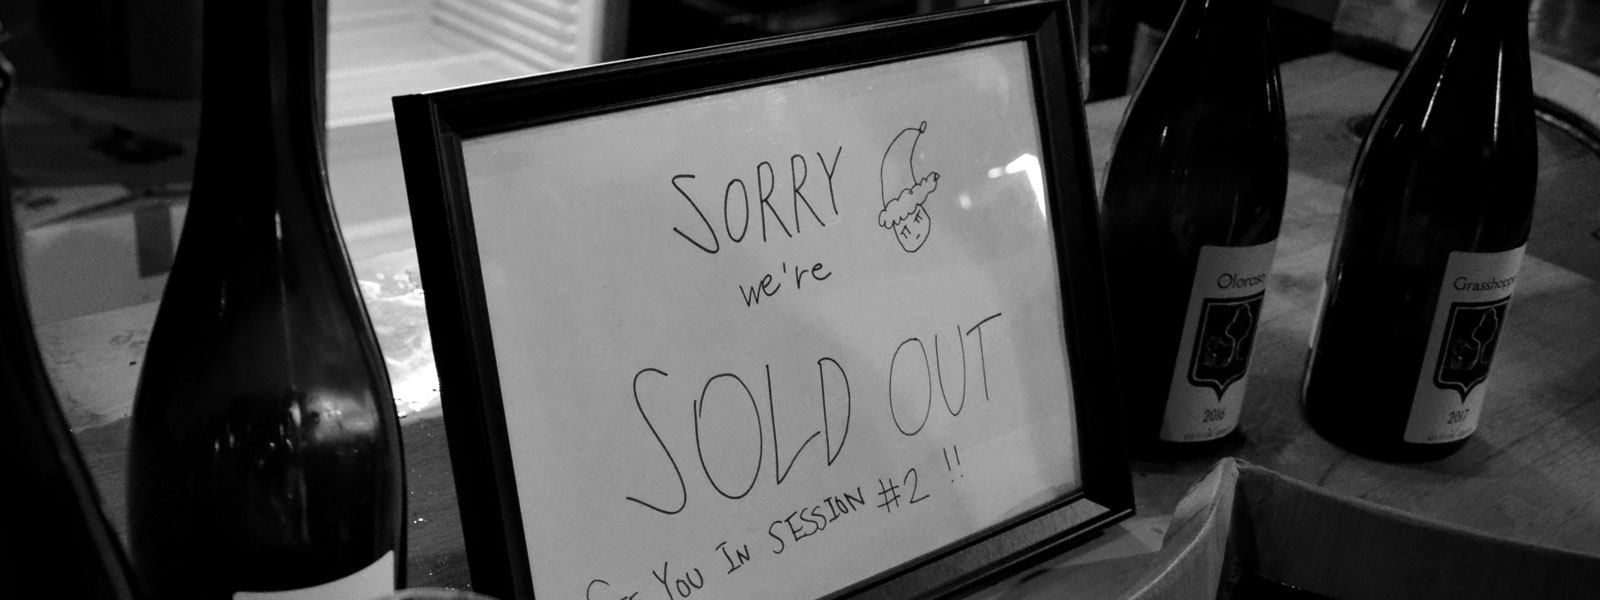 SORRY
we're
SOLD OUT
SEE YOU IN SESSION #2 !!
Oloroso
2016
Grasshopp
2017